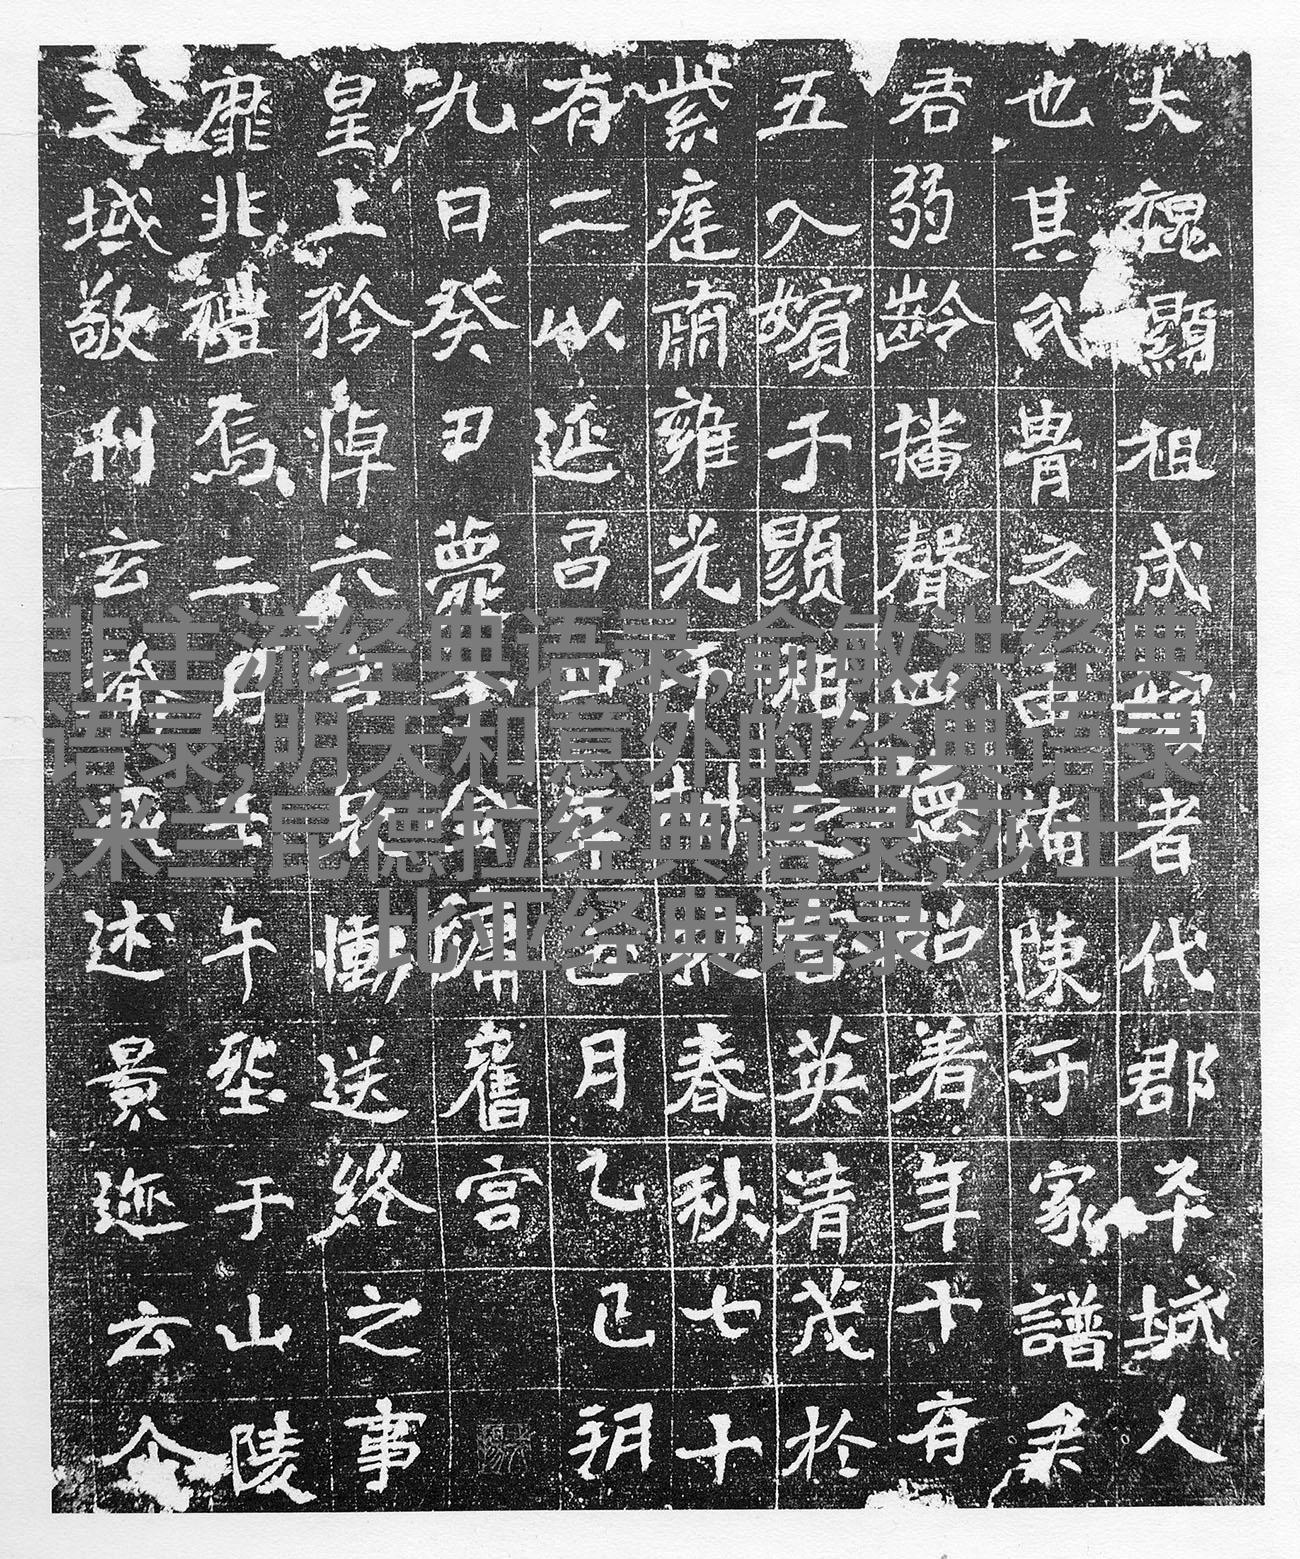 大魏顯祖成嬪者代郡平城人
也其氏胄之由備陳于家譜矣
君弱齡播聲四德紹著年十有
五入嬪于顯祖之宮英清茂於
紫庭肅雍光于椒掖春秋七十
有二以延昌四年正月乙巳朔
九日癸丑薨於金墉舊宮
皇上矜悼六宮哀慟送終之事
靡非禮焉二月甲午塟于山陵
之域敬刊玄瑜式述景迹云尒
非主流经典语录,俞敏洪经典
语录,明天和意外的经典语录
,米兰昆德拉经典语录,莎士
比亚经典语录